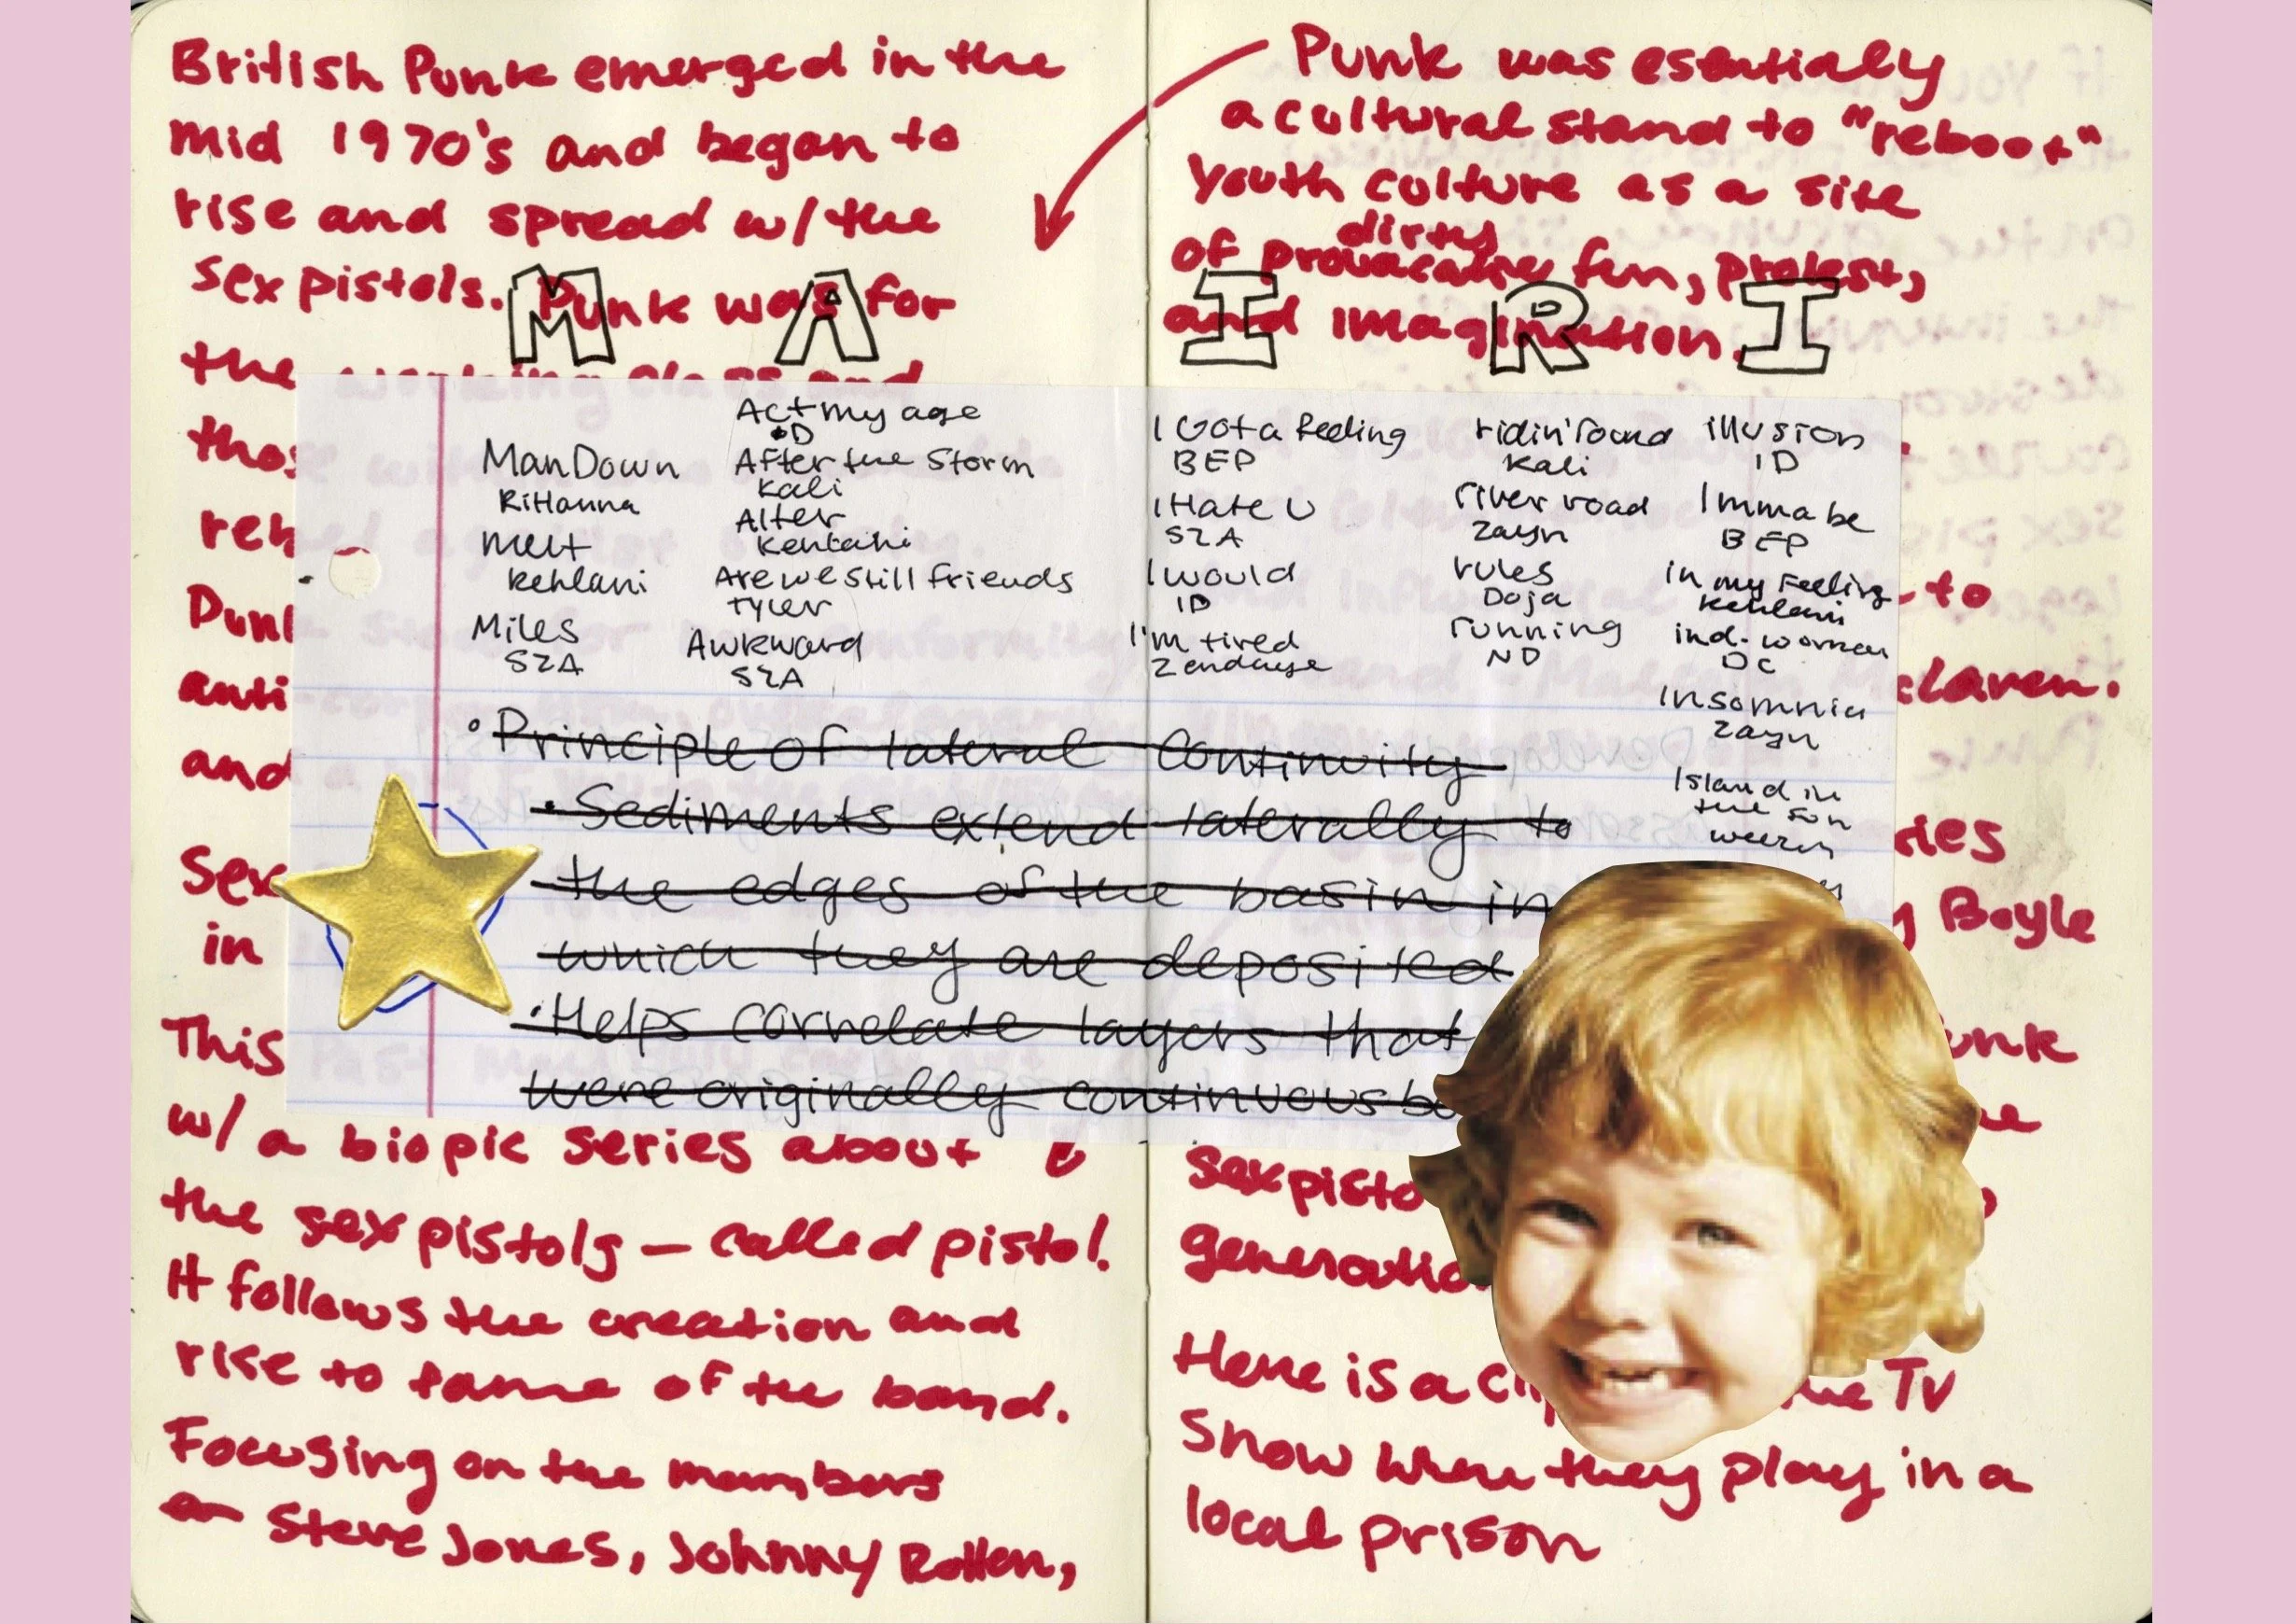 British Punk emerged in the
mid 1970's and began to
rise and spread w/ the
sex pistols. Punk was for
the working class and
those
reb
Punk
anti
and
Sex
in
This
w/ a biopic series about
the sex pistols – called pistol.
It follows the creation and
rise to fame of the band.
Focusing on the members
Steve Jones, Johnny Rotten,
Punk was esentially
a cultural stand to "reboot"
youth culture as a site
dirty
of provacative fun, protest,
and imagination.
to
claren.
ries
y Boyle
unk
sexpisto
generatio
Here is a cli
he TV
show where they play in a
local prison
M A I R I
Man Down
RiHanna
melt
kehlani
Miles
SZA
Act my age
1D
After the Storm
Kali
Alter
Kehlani
Are we still friends
Tyler
Awkward
SZA
I Got a feeling
BEP
I Hate U
SZA
I would
1D
I'm tired
Zendaya
ridin' round
Kali
river road
Zayn
rules
Doja
running
ND
illusion
1D
Imma be
BEP
in my feeling
kehlani
ind. woman
DC
Insomnia
Zayn
Island in
the sun
weezer
• Principle of lateral continuity
• Sediments extend laterally to
the edges of the basin in
which they are deposited
• Helps correlate layers that
were originally continuous be